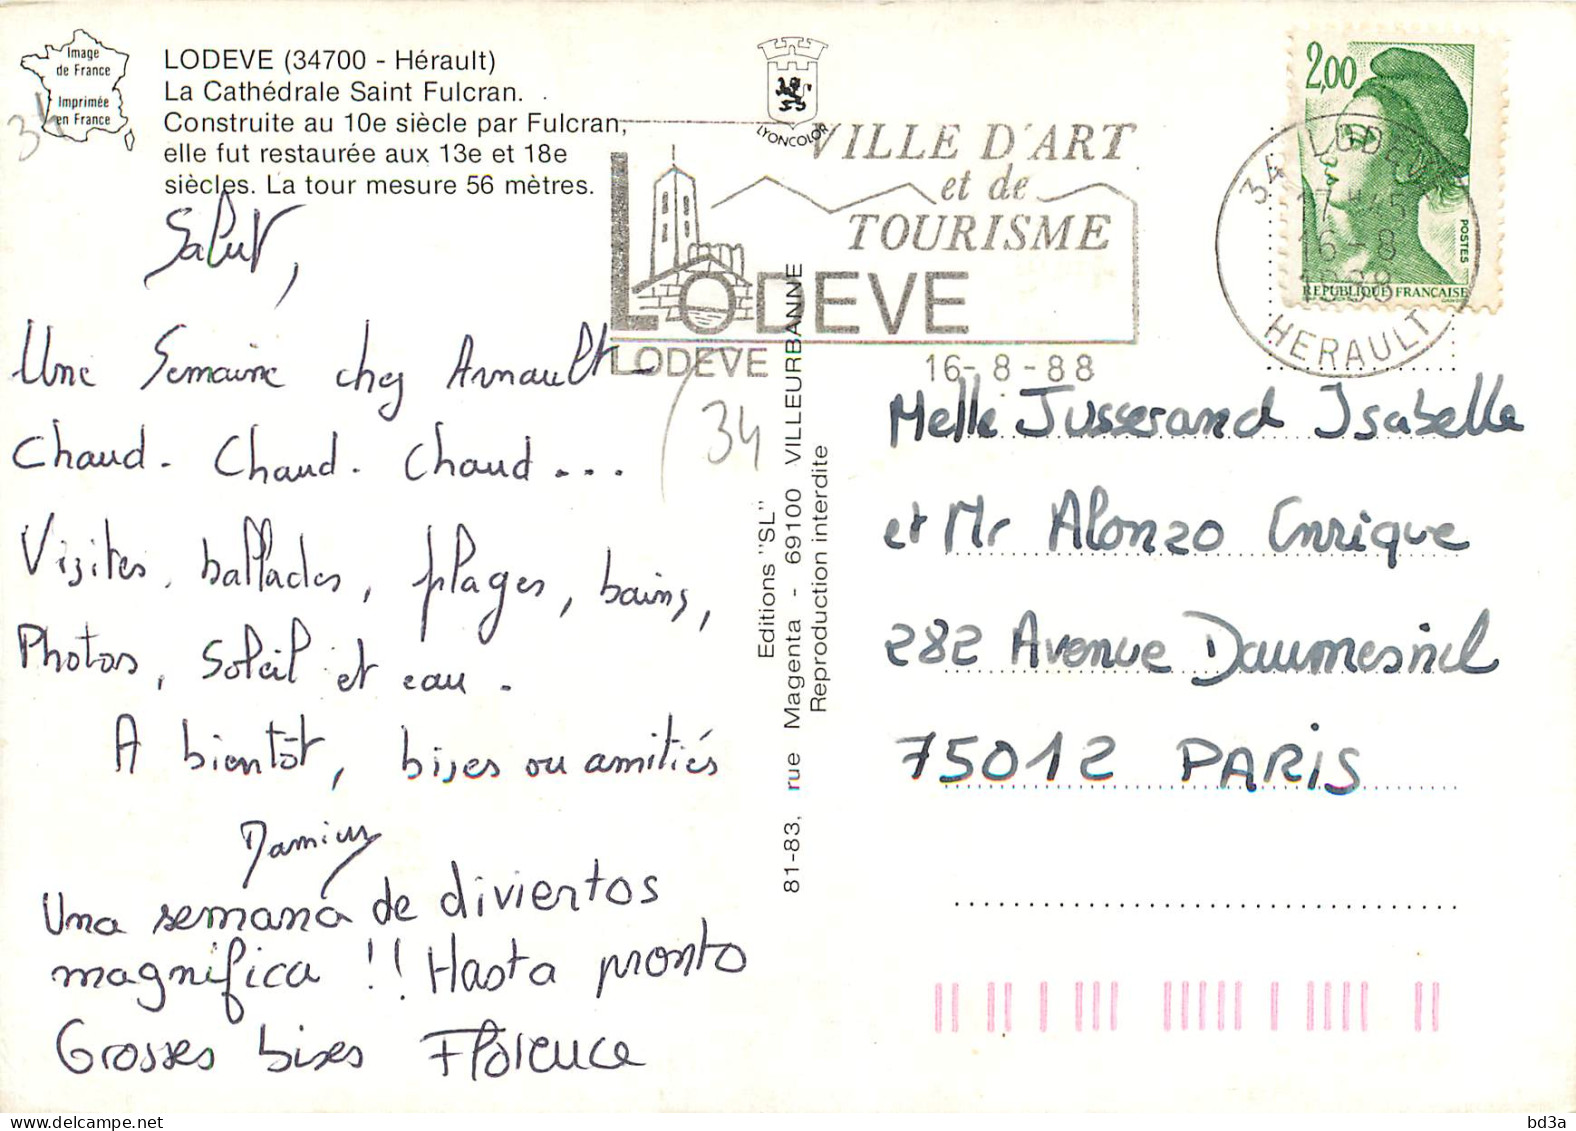 Image
de France
Imprimée
en France
34
LODEVE (34700 - Hérault)
La Cathédrale Saint Fulcran.
Construite au 10e siècle par Fulcran,
elle fut restaurée aux 13e et 18e
siècles. La tour mesure 56 mètres.
LYONCOLOR
VILLE D'ART
et de
TOURISME
LODEVE
LODEVE
16-8-88
2,00
POSTES
REPUBLIQUE FRANÇAISE
34 LODEVE
17H45
16-8
1988
HERAULT
Salut,
Une Semaine chez Arnault
Chaud. Chaud. Chaud...
Visites, ballades, plages, bains,
Photos, Soleil et eau.
A bientôt, bises ou amitiés
Una semana de diviertos
magnifica !! Hasta pronto
Grosses bises Florence
34
Editions "SL"
81-83, rue Magenta - 69100 VILLEURBANNE
Reproduction interdite
Melle Jusserand Isabelle
et Mr Alonzo Enrique
282 Avenue Daumesnil
75012 PARIS
bd3a